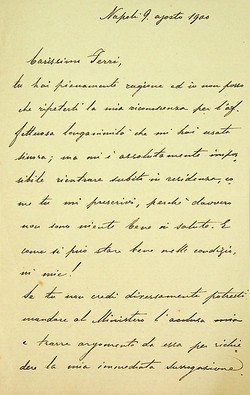 Napoli 9. agosto 1900
Carissimo Ferri,
tu hai pienamente ragione ed io non posso
che ripeterti la mia riconoscenza per l'af-
fettuosa longanimità che mi hai usata
sinora; ma mi è assolutamente impos
sibile rientrare subito in residenza, co
me tu mi prescrivi, perchè davvero
non sono niente bene in salute. E
come si può star bene nelle condizio
ni mie!
Se tu non credi diversamente potresti
mandare al Ministero l'acclusa mia
e trarre argomenti da essa per richie
dere la mia immediata surrogazione.